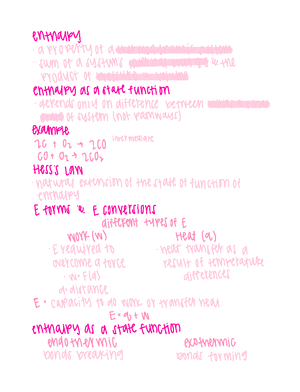 enthalpy
· a property of a
· sum of a systems & the
product of
enthalpy as a state function
· depends only on difference between
of system (not pathways)
example
2C + O₂ → 2CO intermediate
CO + O₂ → 2CO₂
Hess's Law
· natural extension of the state of function of
enthalpy
E forms & E conversions
different types of E
Work (w) Heat (q)
· E required to · heat transfer as a
overcome a force result of temperature
· w = F(d) differences
d = distance
E = capacity to do work or transfer heat
E = q + w
enthalpy as a state function
endothermic exothermic
bonds breaking bonds forming